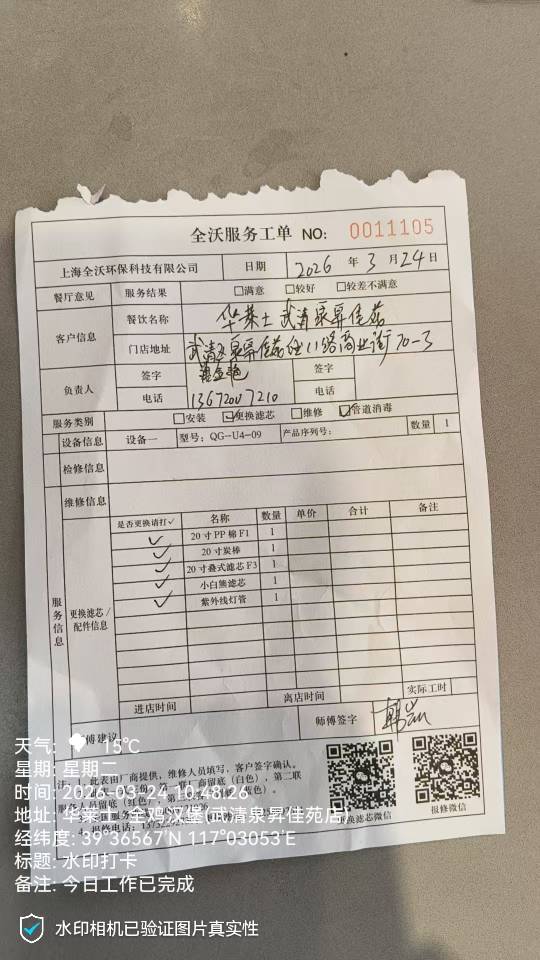 全沃服务工单 NO: 0011105
上海全沃环保科技有限公司 日期 2026 年 3 月 24 日
餐厅意见 服务结果 □满意 □较好 □较差不满意
客户信息 餐饮名称 华莱士 武清泉昇佳苑
门店地址 武清区泉昇佳苑 路商业街70-3
负责人 签字 签字
电话 电话
服务类别 □安装 ☑更换滤芯 □维修 ☑管道消毒
设备信息 设备一 型号: QG-U4-09 产品序列号: 数量 1
检修信息
维修信息
服务信息
更换滤芯/配件信息
是否更换请打✓ 名称 数量 单价 合计 备注
✓ 20寸PP棉F1 1
✓ 20寸炭棒 1
✓ 20寸叠式滤芯F3 1
✓ 小白熊滤芯 1
✓ 紫外线灯管 1
进店时间 离店时间 实际工时
师傅建议 师傅签字
此表由厂商提供，维修人员填写，客户签字确认。
换滤芯微信 报修微信
天气: 15℃
星期: 星期二
时间: 2026-03-24 10:48:26
地址: 华莱士·全鸡汉堡(武清泉昇佳苑店)
经纬度: 39°36567'N 117°03053'E
标题: 水印打卡
备注: 今日工作已完成
水印相机已验证图片真实性